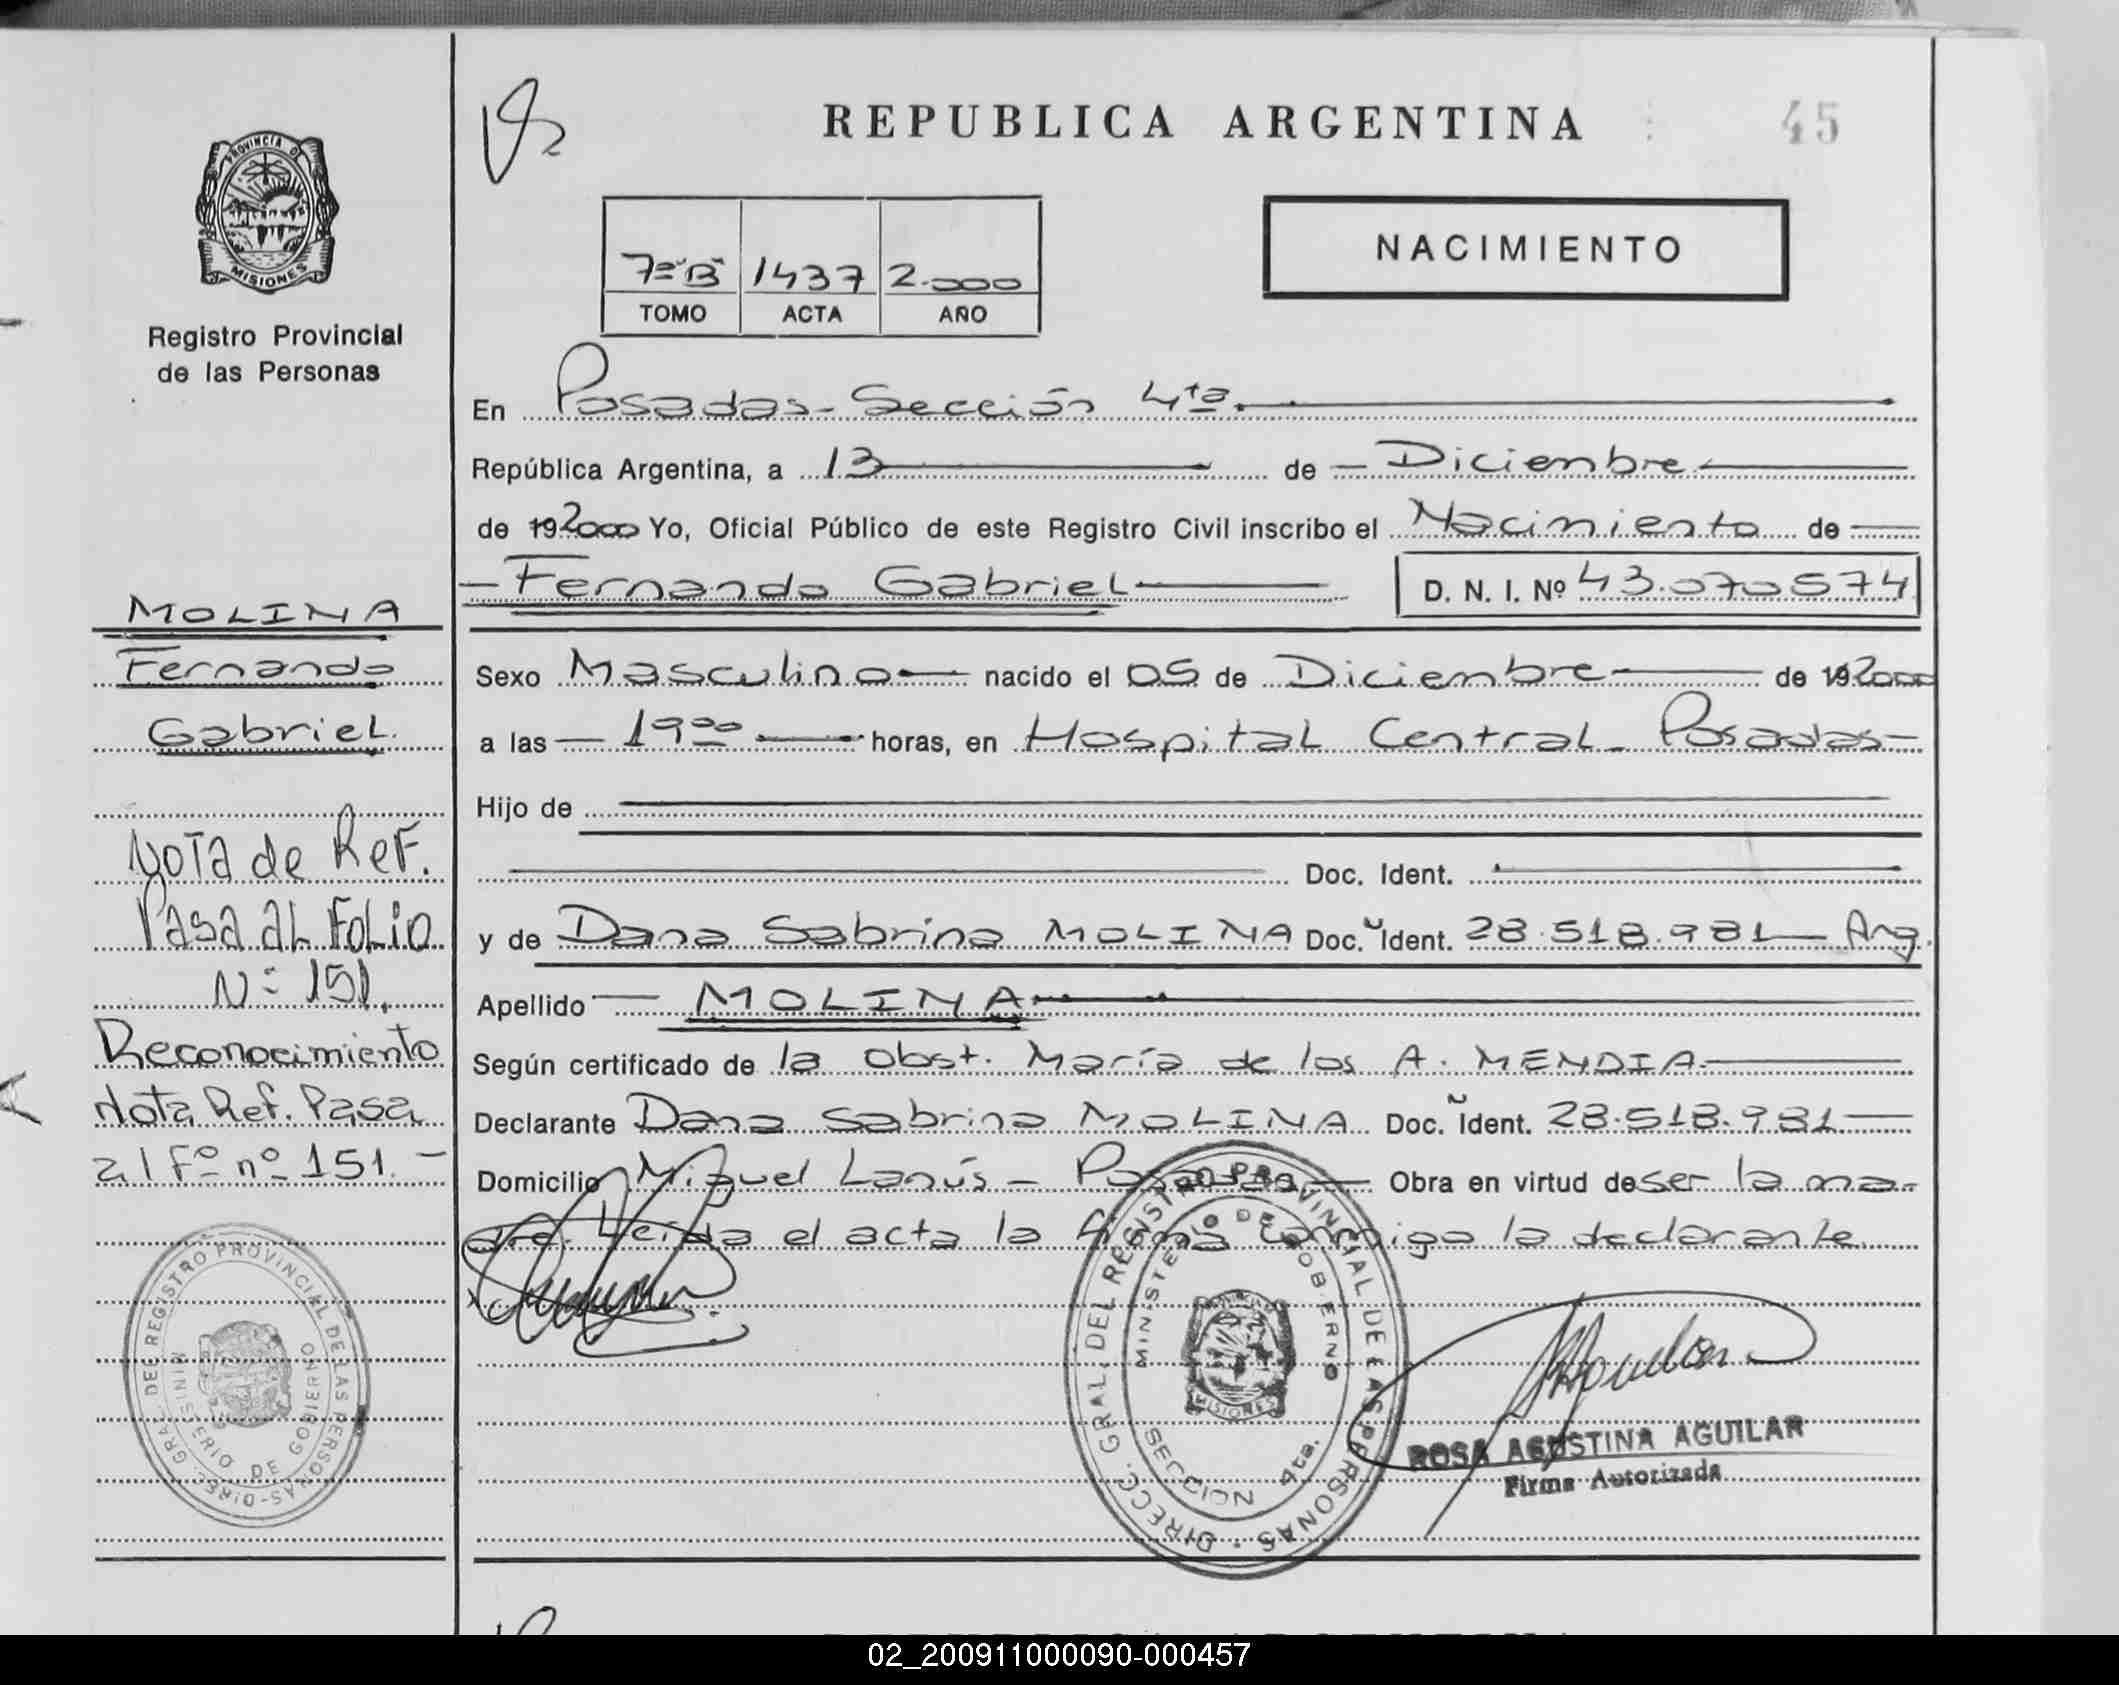 REPUBLICA ARGENTINA
45
PROVINCIA DE
MISIONES
Registro Provincial
de las Personas
7º"B" 1437 2.000
TOMO ACTA AÑO
NACIMIENTO
En Posadas - Sección 4ta.
República Argentina, a 13 de Diciembre
de 192000 Yo, Oficial Público de este Registro Civil inscribo el Nacimiento de
Fernando Gabriel D. N. I. Nº 43.070574
Sexo Masculino nacido el 05 de Diciembre de 192000
a las 19⁰⁰ horas, en Hospital Central - Posadas
Hijo de
Doc. Ident.
y de Dana Sabrina MOLINA Doc. Ident. 28.518.981 Arg.
Apellido MOLINA
Según certificado de la Obst. María de los A. MENDIA
Declarante Dana Sabrina MOLINA Doc. Ident. 28.518.981
Domicilio Miguel Lanús - Posadas Obra en virtud de ser la ma-
dre. Leída el acta la firma conmigo la declarante
MOLINA
Fernando
Gabriel.
Nota de Ref.
Pasa al Folio
Nº 151.
Reconocimiento
Nota Ref. Pasa
al Fº nº 151.-
DIRECC. GRAL. DEL REGISTRO PROVINCIAL DE LAS PERSONAS
MINISTERIO DE GOBIERNO
DIRECC. GRAL. DEL REGISTRO PROVINCIAL DE LAS PERSONAS
MINISTERIO DE GOBIERNO
MISIONES
SECCION 4ta.
ROSA AGUSTINA AGUILAR
Firma Autorizada
02_200911000090-000457